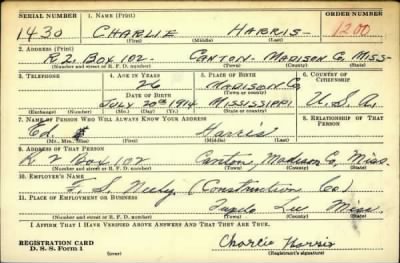 SERIAL NUMBER 1. NAME (Print) ORDER NUMBER
1430 CHARLIE HARRIS 1200
(First) (Middle) (Last)
2. ADDRESS (Print)
R 2. BOX 102- CANTON- MADISON Co, MISS-
(Number and street or R. F. D. number) (Town) (County) (State)
3. TELEPHONE 4. AGE IN YEARS 5. PLACE OF BIRTH 6. COUNTRY OF CITIZENSHIP
26 MADISON Co
DATE OF BIRTH (Town or county)
JULY 20th 1914 MISSISSIPPI U.S.A.
(Exchange) (Number) (Mo.) (Day) (Yr.) (State or country)
7. NAME OF PERSON WHO WILL ALWAYS KNOW YOUR ADDRESS 8. RELATIONSHIP OF THAT PERSON
Ed Harris
(Mr., Mrs., Miss) (First) (Middle) (Last)
9. ADDRESS OF THAT PERSON
R 2 Box 102 Canton, Madison Co, Miss.
(Number and street or R. F. D. number) (Town) (County) (State)
10. EMPLOYER'S NAME
(Construction Co)
11. PLACE OF EMPLOYMENT OR BUSINESS
Lee Miss.
(Number and street or R. F. D. number) (Town) (County) (State)
I AFFIRM THAT I HAVE VERIFIED ABOVE ANSWERS AND THAT THEY ARE TRUE.
REGISTRATION CARD
D. S. S. Form 1 Charlie Harris
(Registrant's signature)